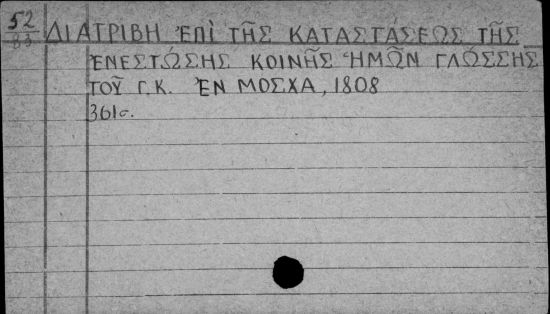 52
83
ΔΙΑΤΡΙΒΗ ἘΠῚ ΤΗ͂Σ ΚΑΤΑΣΤΆΣΕΩΣ ΤΗ͂Σ
ἘΝΕΣΤΏΣΗΣ ΚΟΙΝΗ͂Σ ἩΜΩ͂Ν ΓΛΏΣΣΗΣ
ΤΟΥ͂ Γ.Κ. ἘΝ ΜΟΣΧΑ, 1808
361σ.